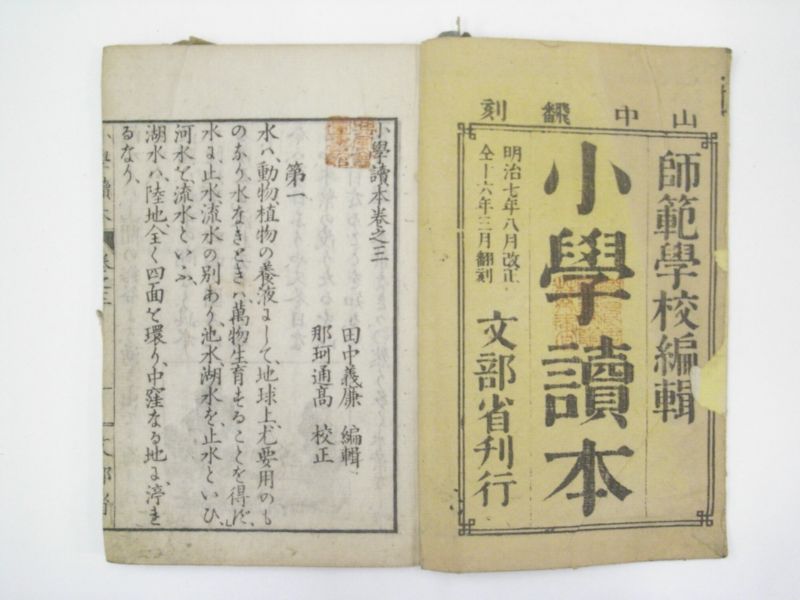 山中翻刻
師範學校編輯
小學讀本
明治七年八月改正
仝十六年三月翻刻
文部省刊行
小學讀本卷之三
田中義廉 編輯
那珂通高 校正
第一
水ハ、動物植物の養液にして、地球上、尤要用のも
のなり、水なきときハ、萬物生育することを得ず、
水に止水、流水の別あり、池水湖水を、止水といひ、
河水を流水といふ、
湖水ハ、陸地全く四面を環り、中窪なる地に、渟ま
るなり、
小學讀本 卷之三 一 文部省